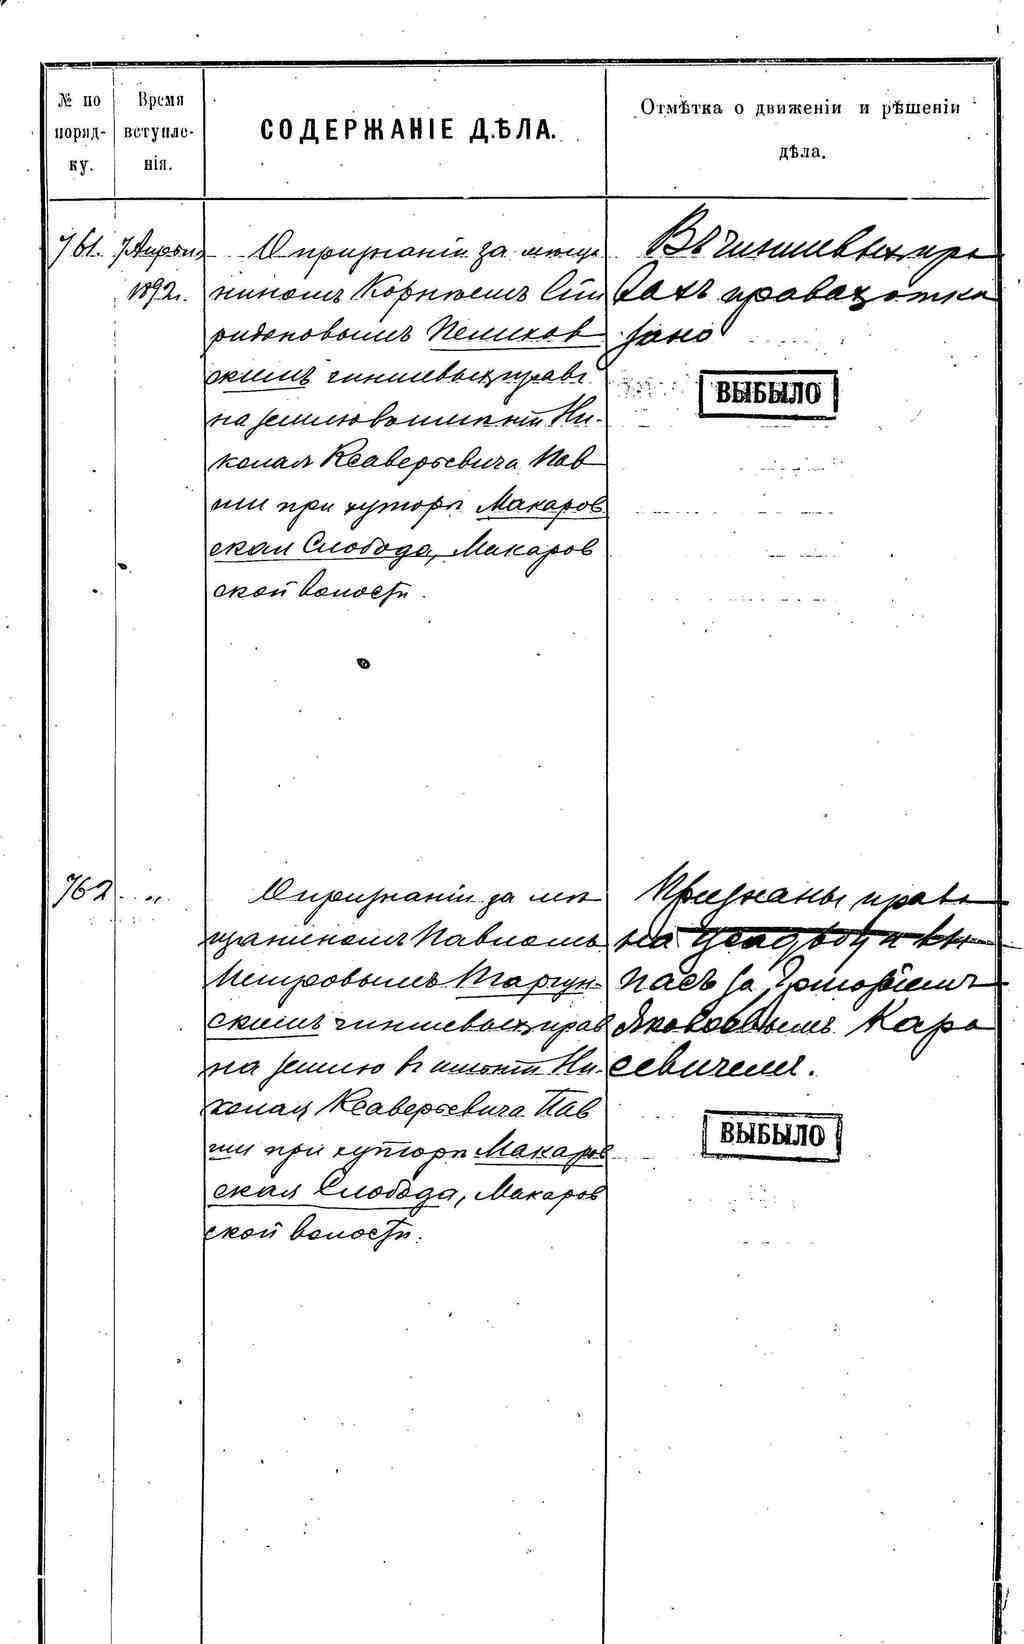 № по порядку.
Время вступленія.
СОДЕРЖАНІЕ ДѢЛА.
Отмѣтка о движеніи и рѣшеніи
дѣла.
761. 7 Апрѣля
1892 г.
О признаніи за мѣща
ниномъ Корнѣемъ Спи
ридоновымъ
скимъ чиншевыхъ правъ
на землю въ имѣніи Ни-
колая Ксаверьевича Пав
ши при хуторѣ Макаров
ская Слобода, Макаров
ской волости.
Въ чиншевыхъ пра
вахъ отка
зано
ВЫБЫЛО
762 "
О признаніи за мѣ
щаниномъ Павломъ
Петровымъ
скимъ чиншевыхъ правъ
на землю въ имѣніи Ни-
колая Ксаверьевича Пав
ши при хуторѣ Макаров
ская Слобода, Макаров
ской волости.
Признаны права
на усадьбу и вы
пасъ за Григоріемъ
Яковлевымъ Кара
севичемъ.
ВЫБЫЛО